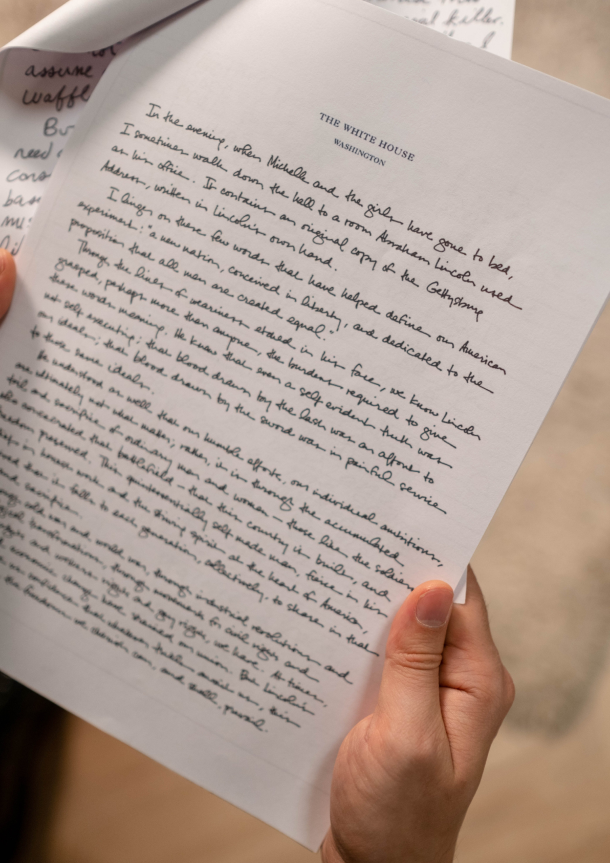 assume
waffl
Bu
need
cons
bas
killer.
THE WHITE HOUSE
WASHINGTON
In the evening, when Michelle and the girls have gone to bed,
I sometimes walk down the hall to a room Abraham Lincoln used
as his office. It contains an original copy of the Gettysburg
Address, written in Lincoln's own hand.
I linger on these few words that have helped define our American
experiment: "a new nation, conceived in liberty, and dedicated to the
proposition that all men are created equal."
Through the lines of weariness etched in his face, we know Lincoln
grasped, perhaps more than anyone, the burdens required to give
these words meaning. He knew that even a self evident truth was
not self executing; that blood drawn by the lash was an affront to
our ideals; that blood drawn by the sword was in painful service
to those same ideals.
He understood as well that our humble efforts, our individual ambitions,
are ultimately not what matter; rather, it is through the accumulated
toil and sacrifice of ordinary men and women - those like the soldiers
who consecrated that battlefield - that this country is built, and
freedom preserved. This quintessentially self made man, fierce in his
belief in honest work and the striving spirit at the heart of America,
believed that it falls to each generation, collectively, to share in that
toil and sacrifice.
cold war and world war, through industrial revolutions and
transformations, through movements for civil rights and
rights and workers rights and gay rights, we have. At times,
economic change have strained our union. But Lincoln's
us confidence that whatever trials await us, this
the freedom we cherish can, and shall, prevail.